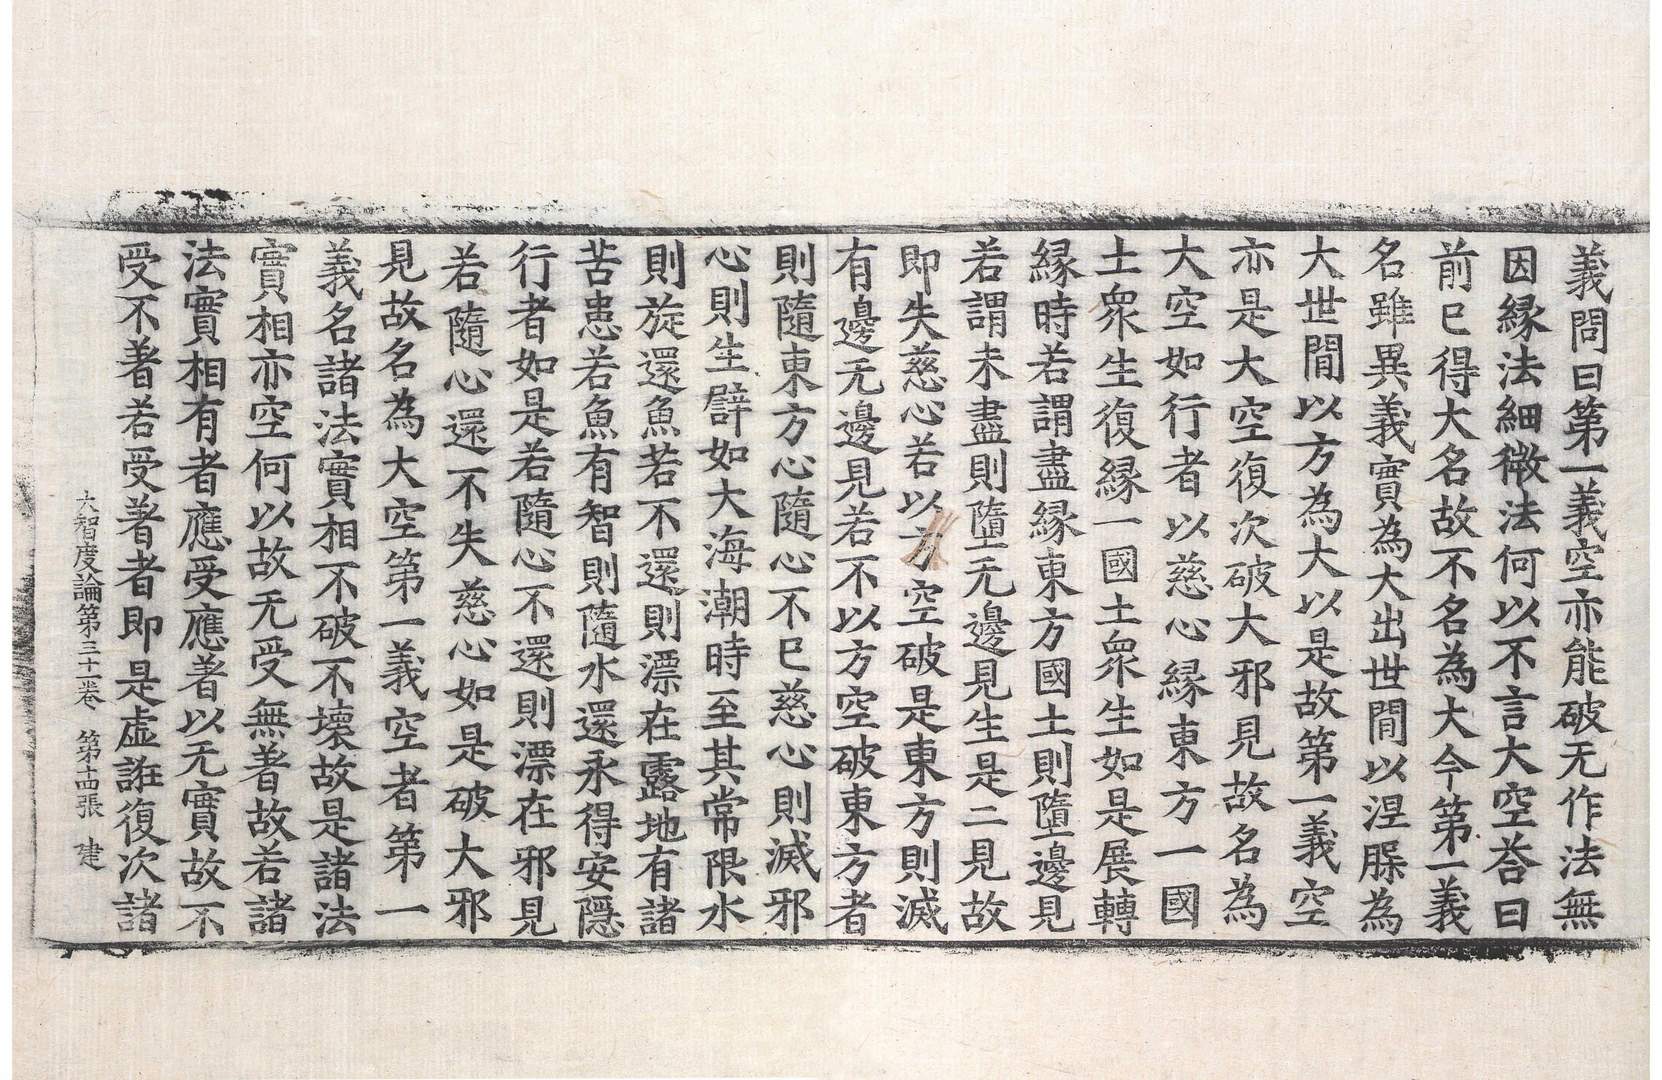 義問曰第一義空亦能破无作法無
因縁法細微法何以不言大空荅曰
前已得大名故不名為大今第一義
名雖異義實為大出世閒以涅脲為
大世閒以方為大以是故第一義空
亦是大空復次破大邪見故名為
大空如行者以慈心縁東方一國
土眾生復縁一國土眾生如是展轉
縁時若謂盡縁東方國土則墮邊見
若謂未盡則墮无邊見生是二見故
即失慈心若以方空破是東方則滅
有邊无邊見若不以方空破東方者
則隨東方心隨心不已慈心則滅邪
心則生譬如大海潮時至其常限水
則旋還魚若不還則漂在露地有諸
苦患若魚有智則隨水還永得安隱
行者如是若隨心不還則漂在邪見
若隨心還不失慈心如是破大邪
見故名為大空第一義空者第一
義名諸法實相不破不壞故是諸法
實相亦空何以故无受無著故若諸
法實相有者應受應著以无實故不
受不著若受著者即是虛誑復次諸
大智度論第三十一卷 第十四張 建